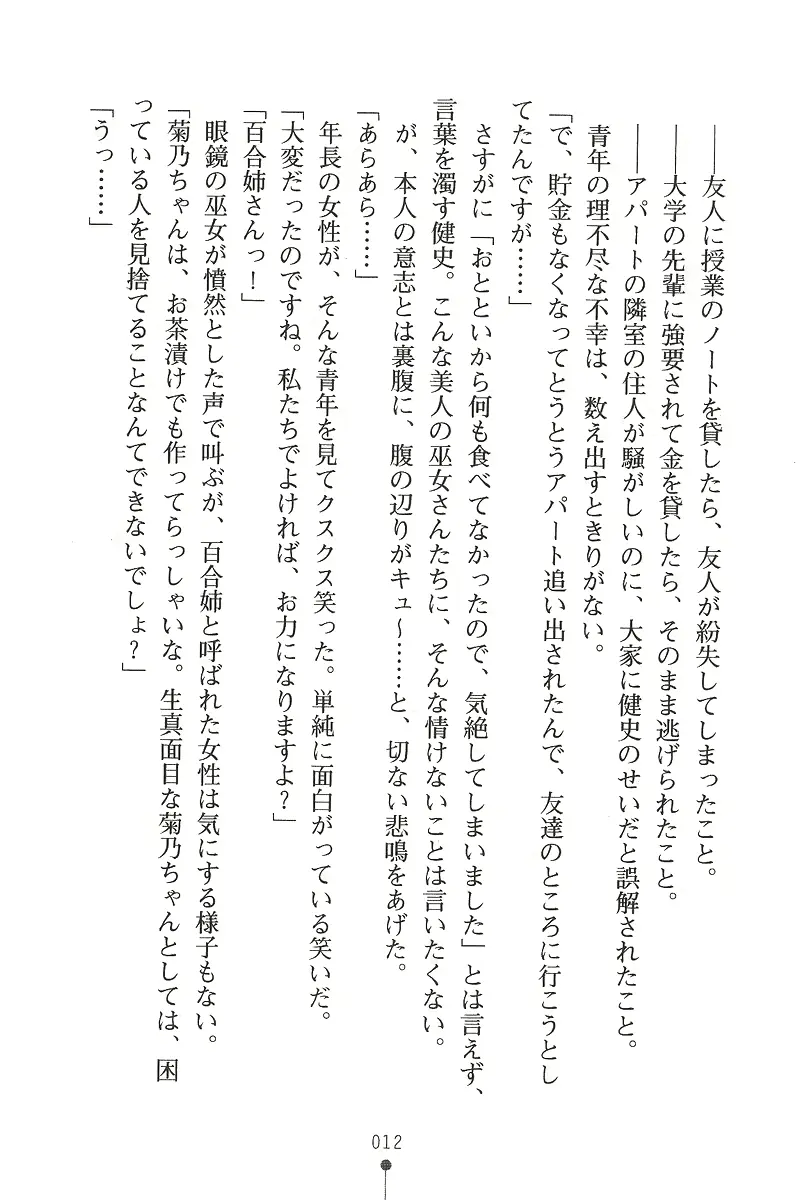 ――友人に授業のノートを貸したら、友人が紛失してしまったこと。
――大学の先輩に強要されて金を貸したら、そのまま逃げられたこと。
――アパートの隣室の住人が騒がしいのに、大家に健史のせいだと誤解されたこと。
青年の理不尽な不幸は、数え出すときりがない。
「で、貯金もなくなってとうとうアパート追い出されたんで、友達のところに行こうとし
てたんですが……」
さすがに「おとといから何も食べてなかったので、気絶してしまいました」とは言えず、
言葉を濁す健史。こんな美人の巫女さんたちに、そんな情けないことは言いたくない。
が、本人の意志とは裏腹に、腹の辺りがキュ〜……と、切ない悲鳴をあげた。
「あらあら……」
年長の女性が、そんな青年を見てクスクス笑った。単純に面白がっている笑いだ。
「大変だったのですね。私たちでよければ、お力になりますよ？」
「百合姉さんっ！」
眼鏡の巫女が憤然とした声で叫ぶが、百合姉と呼ばれた女性は気にする様子もない。
「菊乃ちゃんは、お茶漬けでも作ってらっしゃいな。生真面目な菊乃ちゃんとしては、困
っている人を見捨てることなんてできないでしょ？」
「うっ……」
012